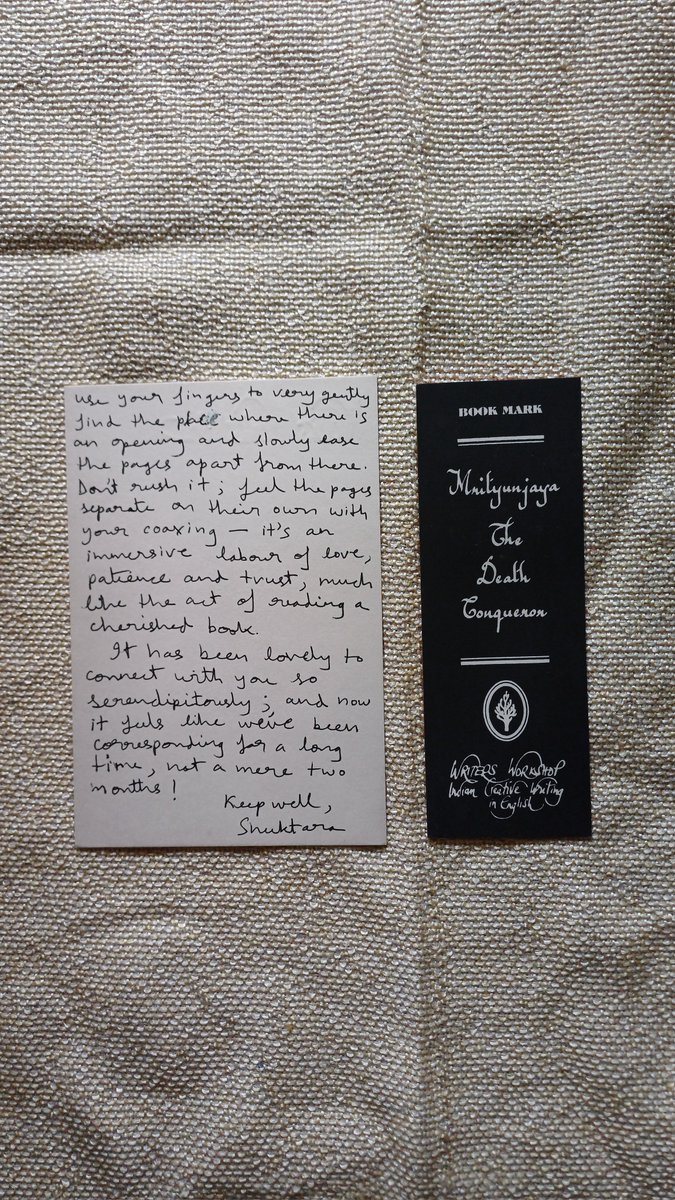 use your fingers to very gently
find the place where there is
an opening and slowly ease
the pages apart from there.
Don't rush it; feel the pages
separate on their own with
your coaxing — it's an
immersive labour of love,
patience and trust, much
like the act of reading a
cherished book.
It has been lovely to
connect with you so
serendipitously; and now
it feels like we've been
corresponding for a long
time, not a mere two
months!
Keep well,
Shuktara
BOOK MARK
Mrityunjaya
The
Death
Conqueror
WRITERS WORKSHOP
Indian Creative Writing
in English